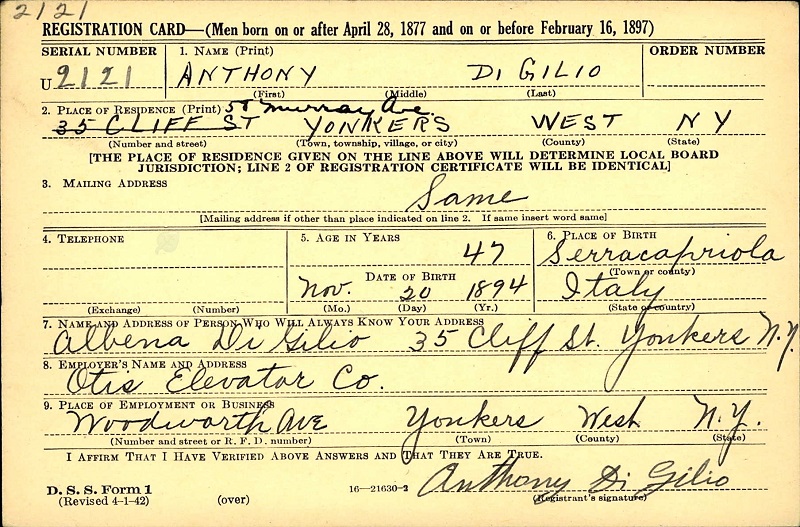 2121
REGISTRATION CARD—(Men born on or after April 28, 1877 and on or before February 16, 1897)
SERIAL NUMBER 1. NAME (Print) ORDER NUMBER
U 2121 ANTHONY DI GILIO
(First) (Middle) (Last)
2. PLACE OF RESIDENCE (Print) Murray Ave
35 CLIFF ST YONKERS WEST NY
(Number and street) (Town, township, village, or city) (County) (State)
[THE PLACE OF RESIDENCE GIVEN ON THE LINE ABOVE WILL DETERMINE LOCAL BOARD
JURISDICTION; LINE 2 OF REGISTRATION CERTIFICATE WILL BE IDENTICAL]
3. MAILING ADDRESS
Same
[Mailing address if other than place indicated on line 2. If same insert word same]
4. TELEPHONE 5. AGE IN YEARS 6. PLACE OF BIRTH
47 Serracapriola
(Town or county)
DATE OF BIRTH
Nov. 20 1894 Italy
(Exchange) (Number) (Mo.) (Day) (Yr.) (State or country)
7. NAME AND ADDRESS OF PERSON WHO WILL ALWAYS KNOW YOUR ADDRESS
Albena Di Gilio 35 Cliff St. Yonkers N.Y.
8. EMPLOYER'S NAME AND ADDRESS
Otis Elevator Co.
9. PLACE OF EMPLOYMENT OR BUSINESS
Woodworth Ave Yonkers West N.Y.
(Number and street or R. F. D. number) (Town) (County) (State)
I AFFIRM THAT I HAVE VERIFIED ABOVE ANSWERS AND THAT THEY ARE TRUE.
Anthony Di Gilio
D. S. S. Form 1 16—21630-2 (Registrant's signature)
(Revised 4-1-42) (over)